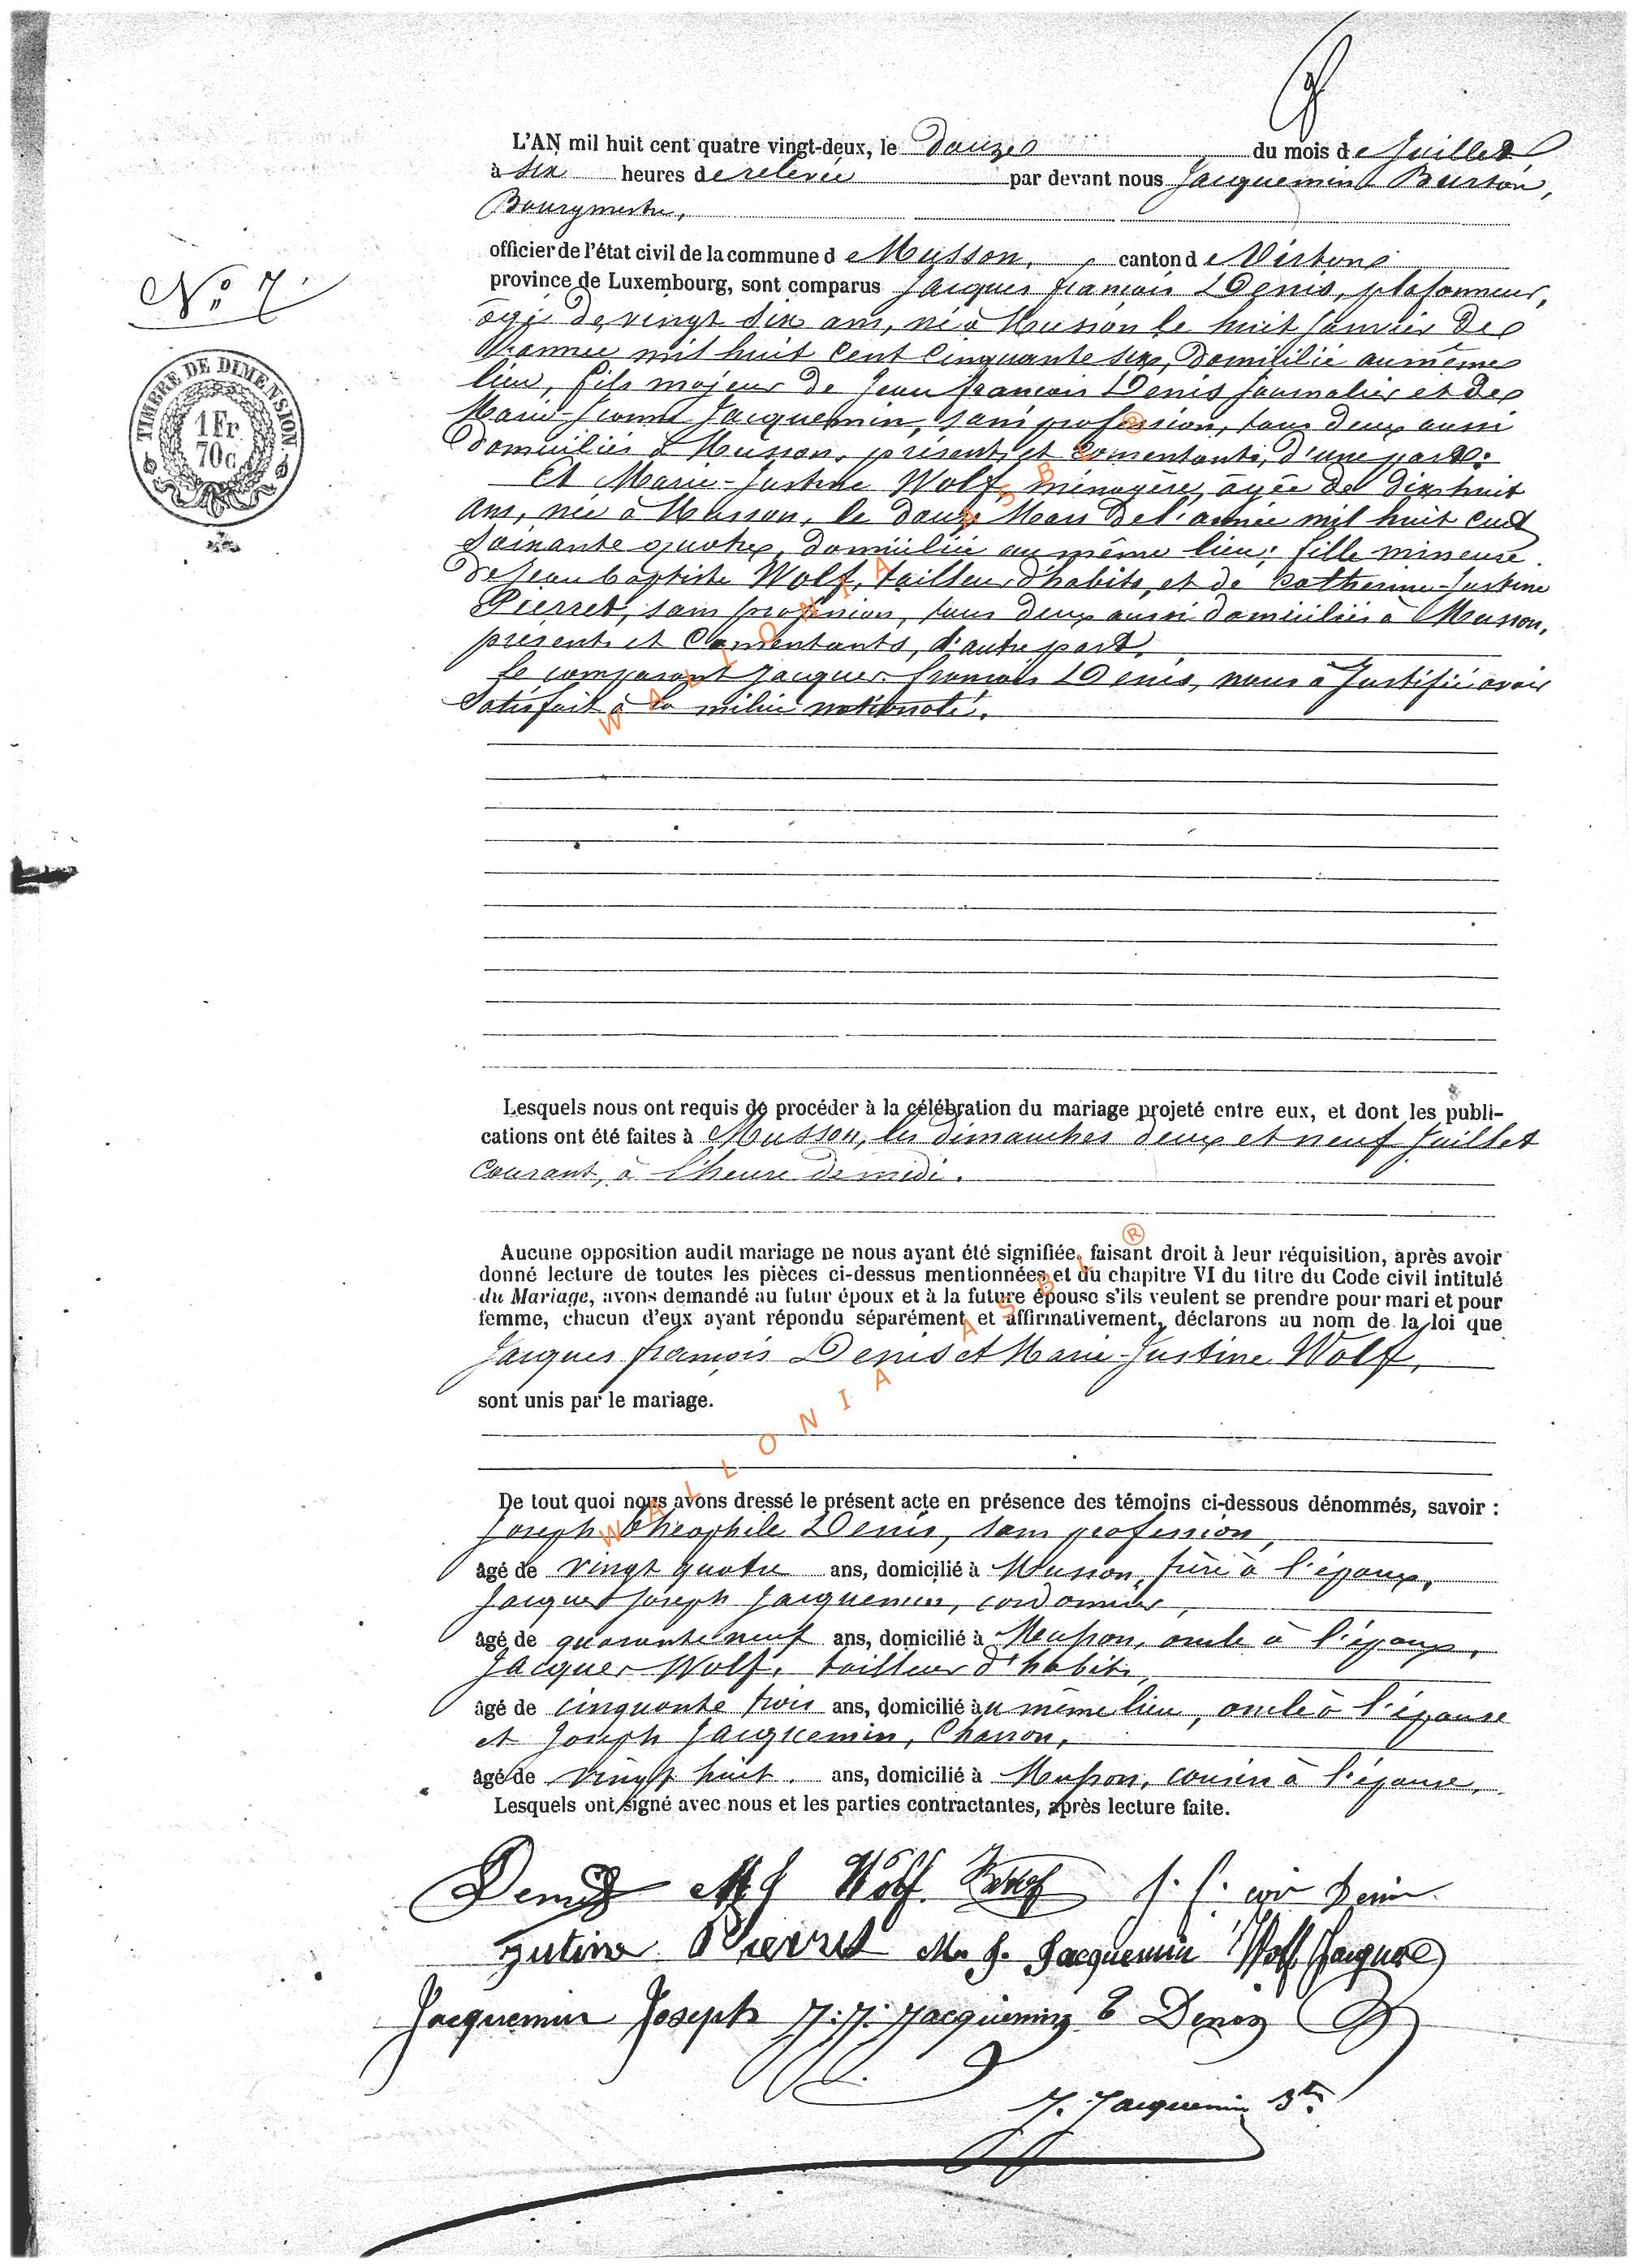 L'AN mil huit cent quatre vingt-deux, le douze du mois de Juillet
à six heures de relevée par devant nous Jacquemin
Bourgmestre,
officier de l'état civil de la commune de Musson, canton de Virton
N° 7.
province de Luxembourg, sont comparus Jacques françois Denis, plafonneur,
âgé de vingt six ans, né à Musson le huit Janvier de
l'année mil huit cent cinquante six, domicilié au même
lieu, fils majeur de Jean françois Denis Journalier et de
Marie-Jeanne Jacquemin, sans profession, tous deux aussi
domiciliés à Musson, présents et consentants, d'une part:
Et Marie-Justine Wolf, ménagère, âgée de dix huit
ans, née à Musson, le douze Mars de l'année mil huit cent
soixante quatre, domiciliée au même lieu; fille mineure
de Jean baptiste Wolf, tailleur d'habits, et de Catherine-Justine
Pierret, sans profession, tous deux aussi domiciliés à Musson,
présents et consentants, d'autre part.
Le comparant Jacques françois Denis, nous a Justifié avoir
satisfait à la milice nationale.
TIMBRE DE DIMENSION
1 Fr
70 c.
WALLONIA ASBL ®
Lesquels nous ont requis de procéder à la célébration du mariage projeté entre eux, et dont les publi-
cations ont été faites à Musson, les dimanches deux et neuf Juillet
courant, à l'heure de midi.
Aucune opposition audit mariage ne nous ayant été signifiée, faisant droit à leur réquisition, après avoir
donné lecture de toutes les pièces ci-dessus mentionnées et du chapitre VI du titre du Code civil intitulé
du Mariage, avons demandé au futur époux et à la future épouse s'ils veulent se prendre pour mari et pour
femme, chacun d'eux ayant répondu séparément et affirmativement, déclarons au nom de la loi que
Jacques françois Denis et Marie-Justine Wolf,
sont unis par le mariage.
WALLONIA ASBL ®
De tout quoi nous avons dressé le présent acte en présence des témoins ci-dessous dénommés, savoir :
Joseph théophile Denis, sans profession,
âgé de vingt quatre ans, domicilié à Musson, frère à l'époux,
Jacques Joseph Jacquemin, cordonnier,
âgé de quarante neuf ans, domicilié à Musson, oncle à l'époux,
Jacques Wolf, tailleur d'habits,
âgé de cinquante trois ans, domicilié au même lieu, oncle à l'épouse
et Joseph Jacquemin, Charron,
âgé de vingt huit ans, domicilié à Musson, cousin à l'épouse,
Lesquels ont signé avec nous et les parties contractantes, après lecture faite.
Denis M J Wolf. J. f. Denis
Justine Pierret M. J. Jacquemin Wolf Jacques
Jacquemin Joseph J. J. Jacquemin T Denis
J. Jacquemin